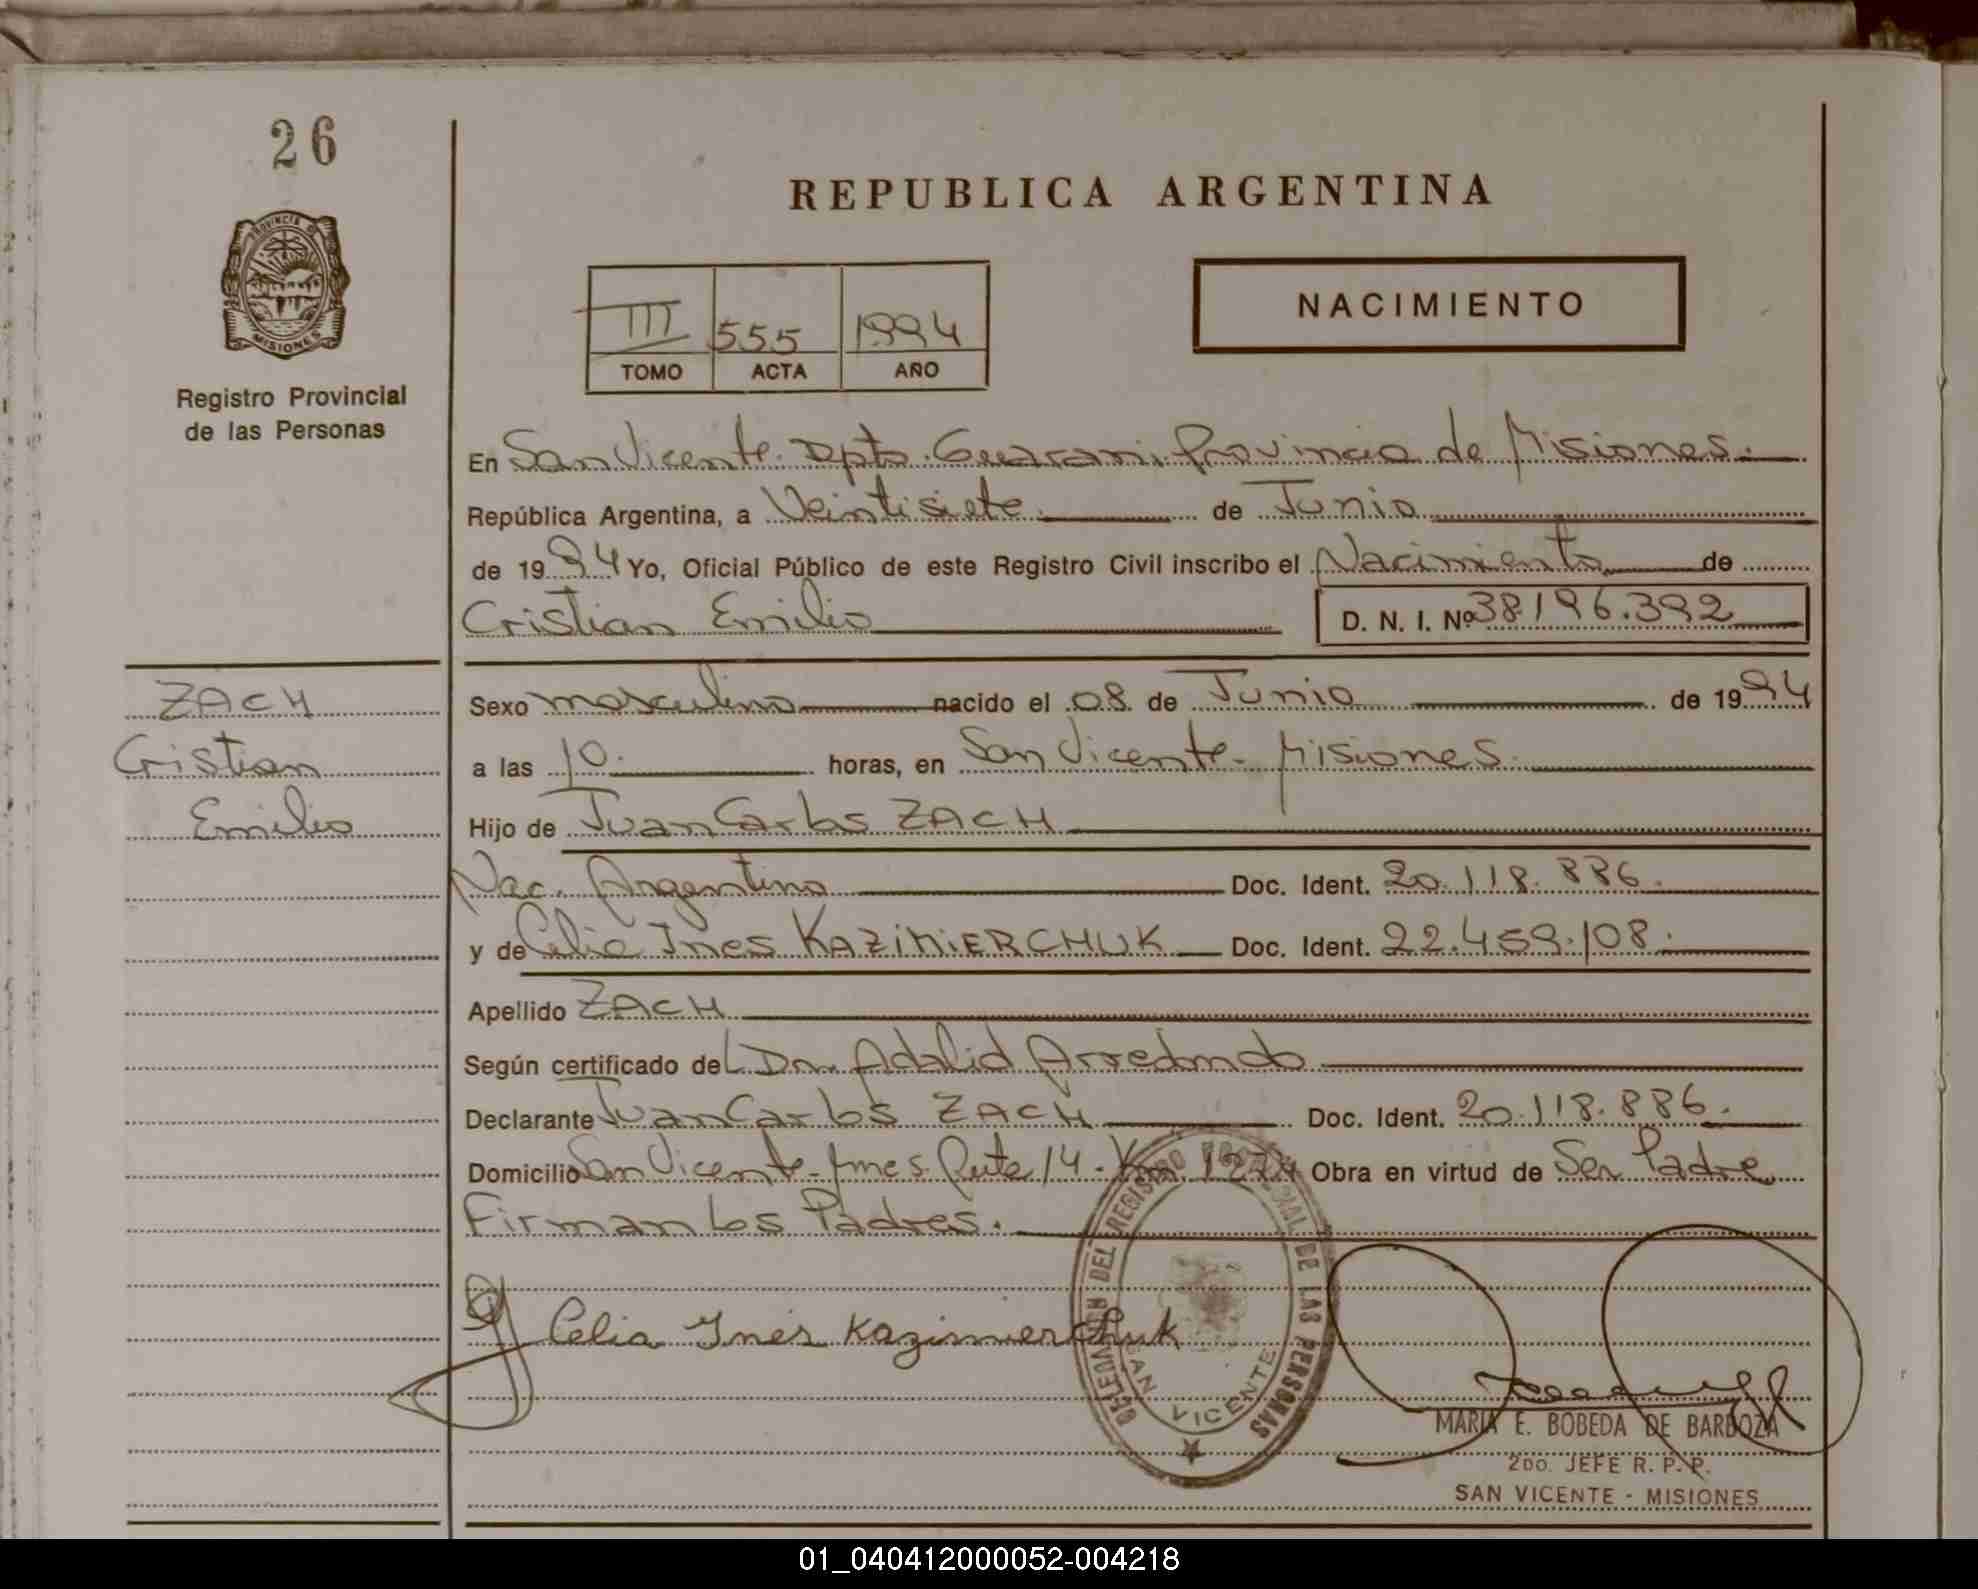 26
PROVINCIA DE
MISIONES
Registro Provincial
de las Personas
REPUBLICA ARGENTINA
III 555 1994
TOMO ACTA AÑO
NACIMIENTO
En San Vicente. Dpto. Guarani, Provincia de Misiones.
República Argentina, a Veintisiete de Junio
de 1994 Yo, Oficial Público de este Registro Civil inscribo el Nacimiento de
Cristian Emilio D. N. I. Nº 38.196.392
ZACH
Cristian
Emilio
Sexo masculino nacido el 08 de Junio de 1994
a las 10. horas, en San Vicente - Misiones.
Hijo de Juan Carlos ZACH
Nac. Argentino Doc. Ident. 20.118.886.
y de Celia Ines KAZIMIERCHUK Doc. Ident. 22.459.108.
Apellido ZACH
Según certificado del Dr. Adalid Arredondo
Declarante Juan Carlos ZACH Doc. Ident. 20.118.886.
Domicilio San Vicente - Mnes. Ruta 14 - Km. 1274 Obra en virtud de Ser Padre
Firman los Padres.
Celia Inés Kazimierchuk
DELEGACION DEL REGISTRO PROVINCIAL DE LAS PERSONAS
SAN VICENTE
MARIA E. BOBEDA DE BARBOZA
2DO. JEFE R. P. P.
SAN VICENTE - MISIONES
01_040412000052-004218